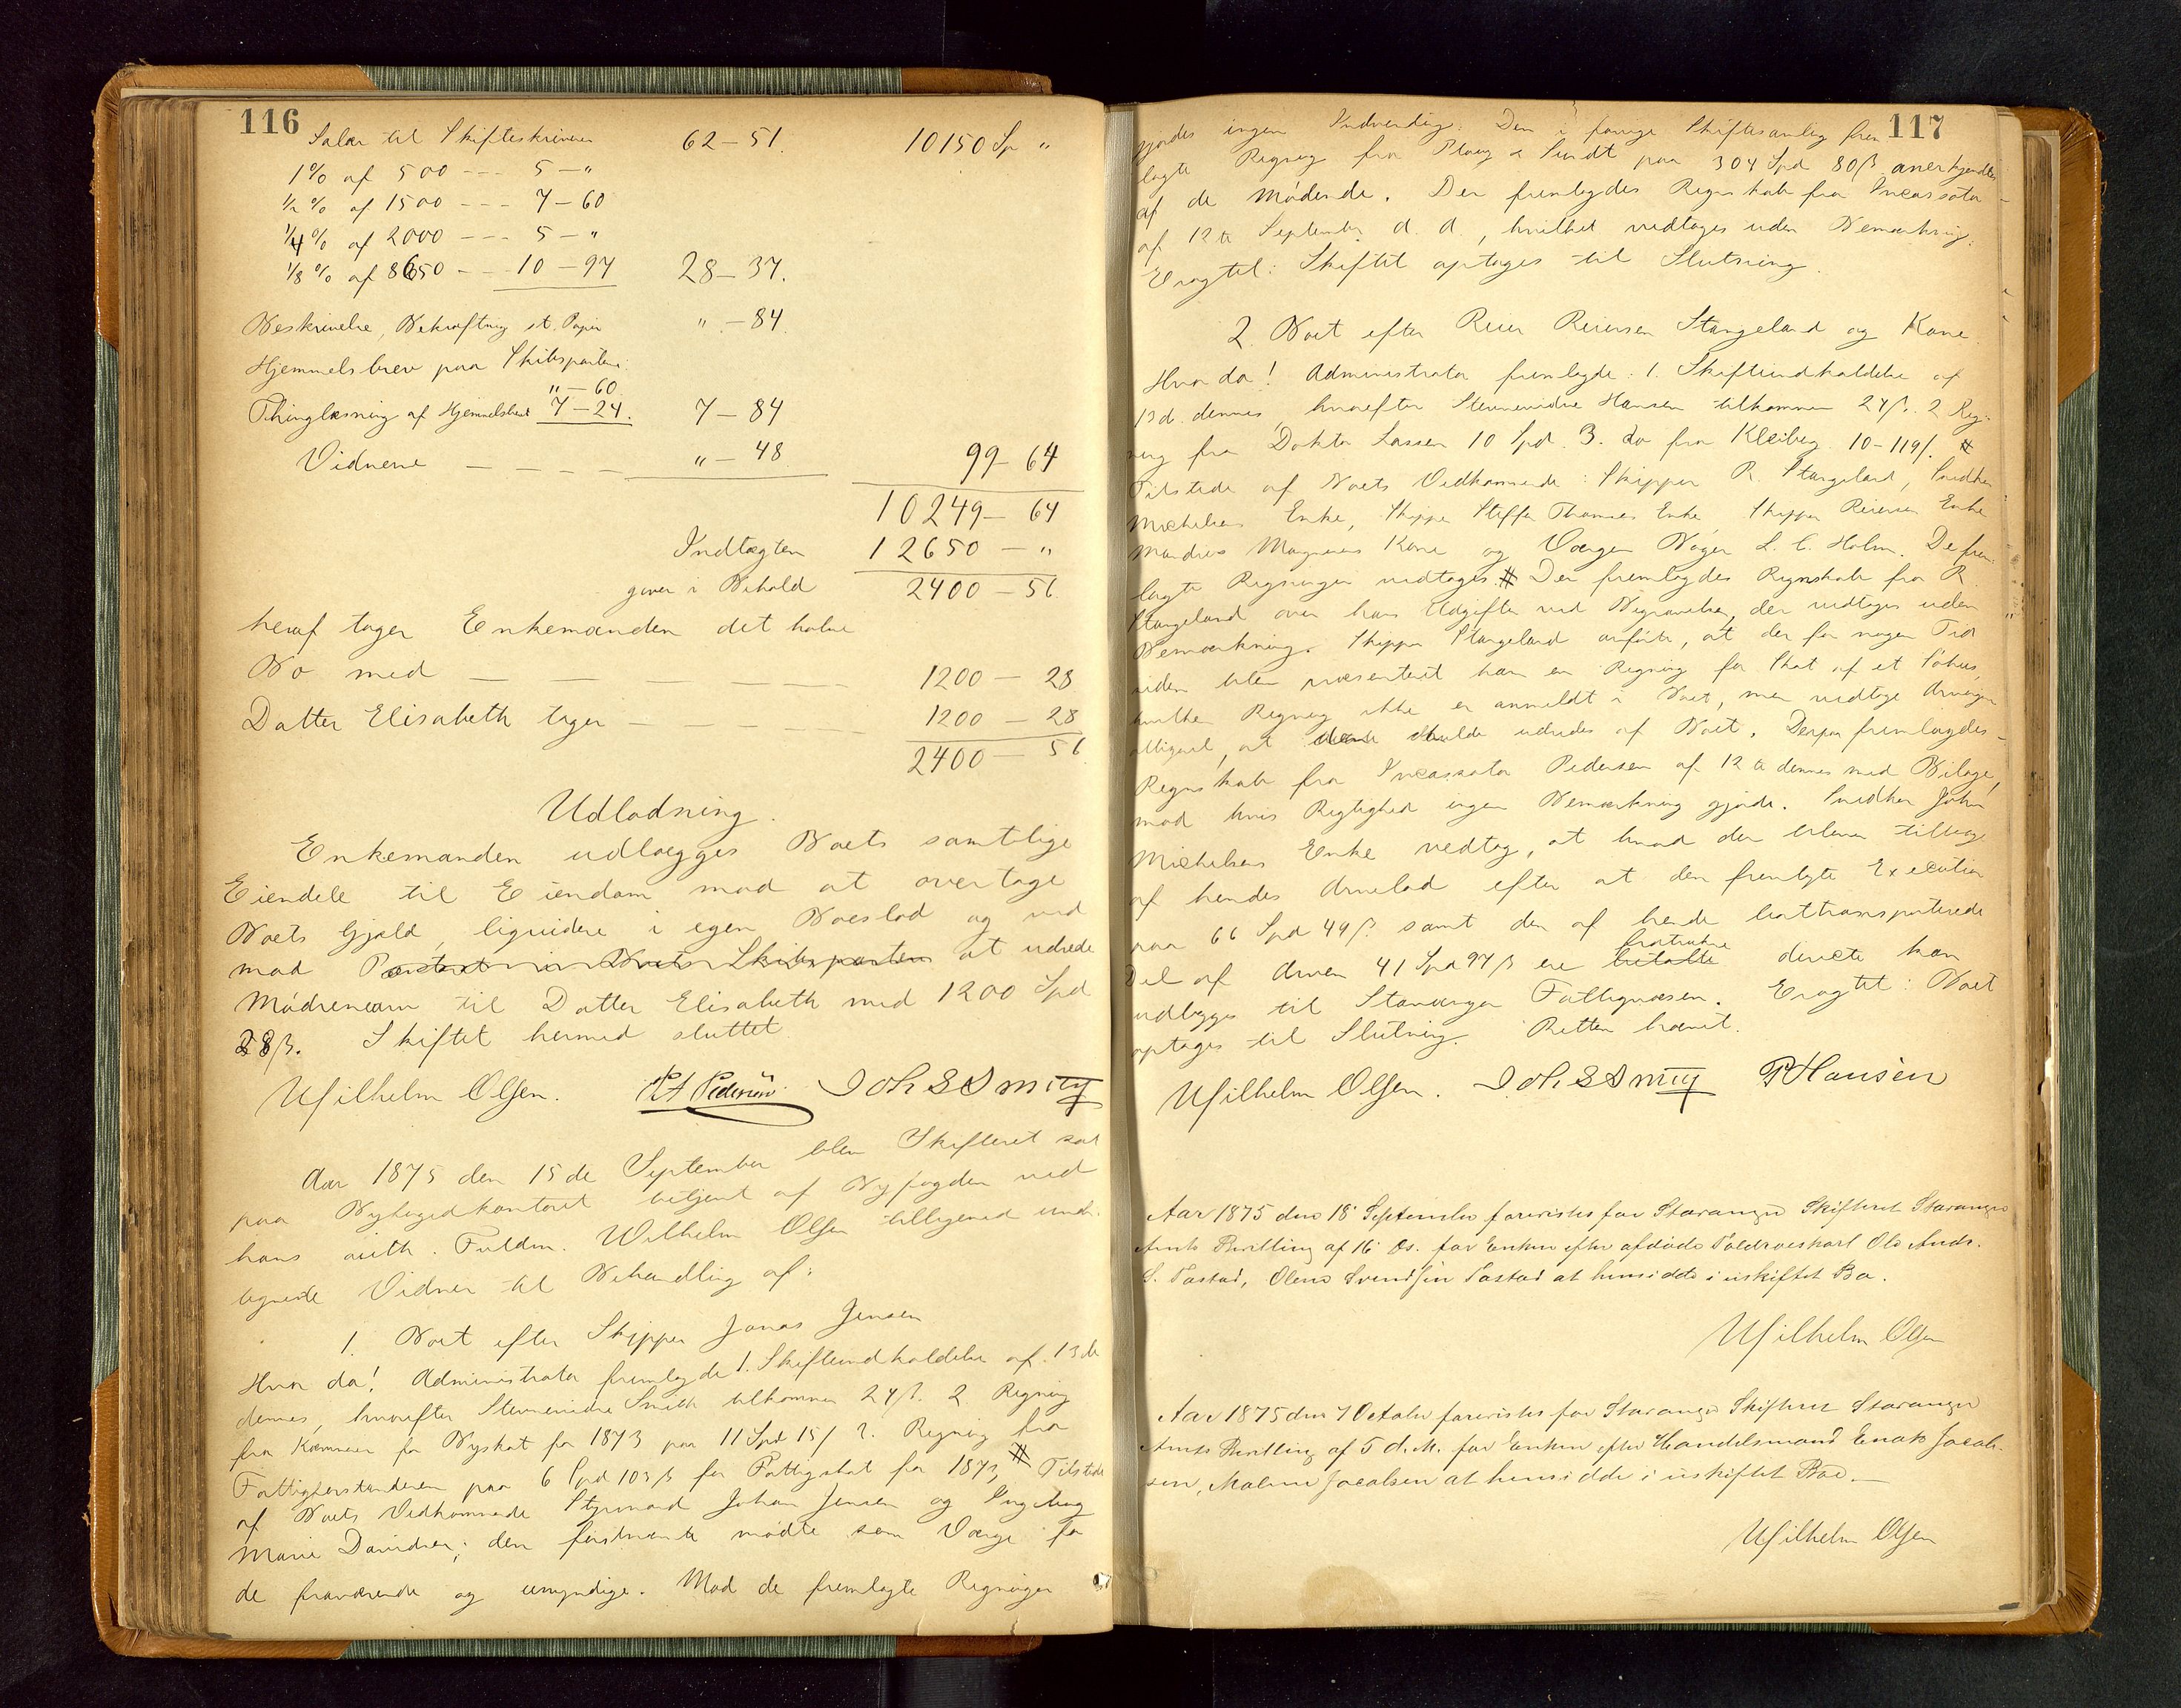 116
Salær til Skifteskriveren 62-51. 10150 Sp "
1% af 500 --- 5-"
½% af 1500 --- 7-60
¼% af 2000 --- 5-"
⅛% af 8650 --- 10-97 28-37.
Beskrivelse, Bekræftning st. Papir "-84.
Hjemmelsbrev paa Skibsparten:
"-60
Thinglæsning af Hjemmelsbrev 7-24. 7-84
Vidnerne - - - - "-48 99-64
10249-64
Indtægten 12650-"
giver i Behold 2400-56.
heraf tager Enkemanden det halve
Bo med 1200-28
Datter Elisabeth tager 1200-28
2400-56
Udlodning.
Enkemanden udlægges Boets samtlige
Eiendele til Eiendom mod at overtage
Boets Gjæld, liquidere i egen Boeslod og ved
mod Panteret i Boets Skibsparten at udrede
Mødrenearv til Datter Elisabeth med 1200 Spd
28ß. Skiftet hermed sluttet.
Wilhelm Olsen. Pedersen Joh S Smith
Aar 1875 den 15de September blev Skifteret sat
paa Byfogedkontoret betjent af Byfogden ved
hans auth. Fuldm. Wilhelm Olsen tilligemed under-
tegnede Vidner til Behandling af:
1. Boet efter Skipper Jonas Jensen
Hvor da! Administrator fremlagde 1. Skifteindkaldelse af 13de
dennes, hvorefter Stevnevidne Smith tilkommer 24ß. 2. Regning
fra Kæmneren for Byskat for 1873 paa 11 Spd 15ß 3. Regning fra
Fattigforstanderen paa 6 Spd 103ß for Fattigskat for 1873, # Tilstede
af Boets Vedkommende Styrmand Johan Jensen og Ingeborg
Marie Davidsen; den førstnævnte mødte som Værge for
de fraværende og umyndige. Mod de fremlagte Regninger
117
gjordes ingen Indvending. Den i forrige Skiftesamling frem-
lagte Regning fra Ploug & Sundt paa 304 Spd 80ß anerkjendtes
af de Mødende. Der fremlagdes Regnskab fra Incassator
af 12te September d. A., hvilket vedtages uden Bemærkning.
Eragtet: Skiftet optages til Slutning.
2. Boet efter Reier Reiersen Stangeland og Kone.
Hvor da! Administrator fremlagde: 1. Skifteindkaldelse af
13d. dennes, hvorefter Stevnevidne Hansen tilkommer 24ß. 2 Reg-
ning fra Doktor Lassen 10 Spd. 3. do fra Kleiberg 10-119ß. #
Tilstede af Boets Vedkommende: Skipper R. Stangeland, Snedker
Michelsens Enke, Skipper Steffen Thomsens Enke, Skipper Reiersens Enke
Mandius Magnesens Kone og Værgen Bager L. C. Holm. De frem-
lagte Regninger vedtages. # Der fremlagdes Regnskab fra R.
Stangeland over hans Udgifter ved Begravelsen, der vedtages uden
Bemærkning. Skipper Stangeland anførte, at der for nogen Tid
siden blev præsenteret ham en Regning for Skat af et Søhus,
hvilken Regning ikke er anmeldt i Boet, men vedtoge Arvingerne
alligevel, at denne skulde udredes af Boet. Derpaa fremlagdes
Regnskab fra Incassator Pedersen af 12te dennes med Bilage,
mod hvis Rigtighed ingen Bemærkning gjorde. Snedker John
Michelsens Enke vedtog, at hvad der bliver tillovers
af hendes Arvelod efter at den fremlagte Execution
paa 66 Spd 49ß samt den af hende borttransporterede
Del af Arven 41 Spd 97ß ere betalte fratrukne directe kan
udlægges til Stavanger Fattigvæsen. Eragtet: Boet
optages til Slutning. Retten hævet.
Wilhelm Olsen. Joh S Smith P Hansen
Aar 1875 den 18 September foreviste for Stavanger Skifteret Stavanger
Amts Bevilling af 16 ds. for Enken efter afdøde Toldroerskarl Ole Andr.
S. Tastad, Olene Svendsen Tastad at hensidde i uskiftet Bo.
Wilhelm Olsen
Aar 1875 den 7 October foreviste for Stavanger Skifteret Stavanger
Amts Bevilling af 5 d. M. for Enken efter Handelsmand Enok Jacob-
sen, Malene Jacobsen at hensidde i uskiftet Boe.
Wilhelm Olsen